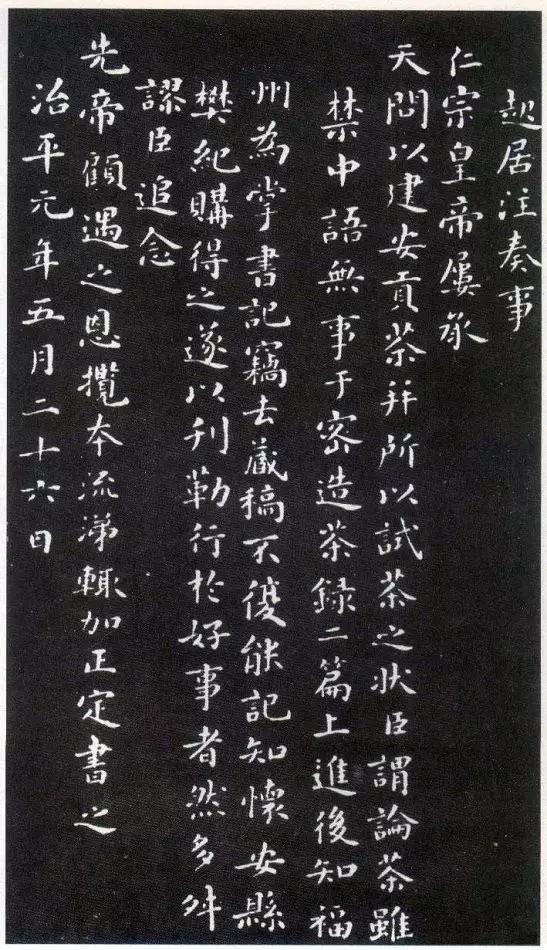 起居注奏事
仁宗皇帝屢承
天問以建安貢茶并所以試茶之狀臣謂論茶雖
禁中語無事于密造茶録二篇上進後知福
州為掌書記竊去藏稿不復能記知懷安縣
樊紀購得之遂以刋勒行於好事者然多舛
謬臣追念
先帝顧遇之恩攬本流涕輒加正定書之
治平元年五月二十六日